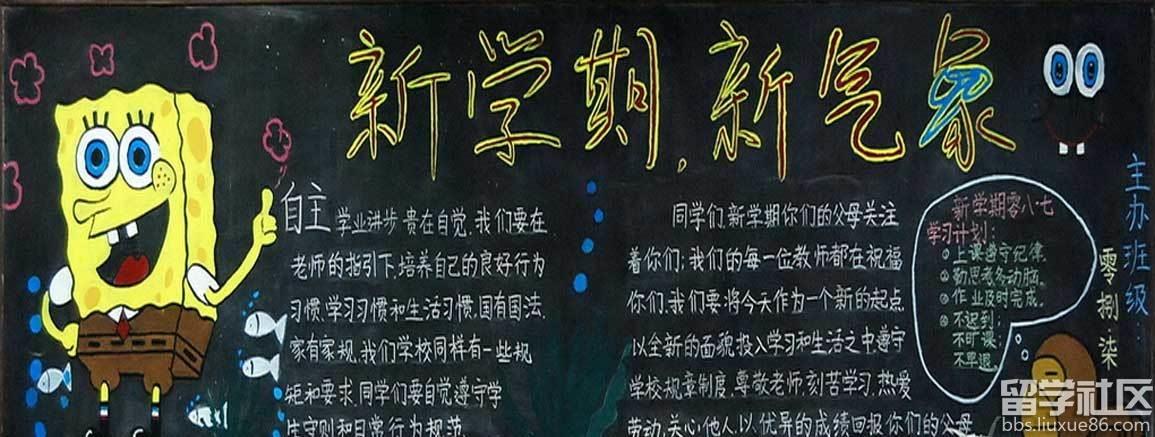 新学期,新气象
自主学业进步,贵在自觉.我们要在
老师的指引下,培养自己的良好行为
习惯,学习习惯和生活习惯,国有国法.
家有家规.我们学校同样有一些规
矩和要求.同学们要自觉遵守学
生守则和日常行为规范.
同学们,新学期你们的父母关注
着你们;我们的每一位教师都在祝福
你们.我们要将今天作为一个新的起点
以全新的面貌,投入学习和生活之中,遵守
学校规章制度,尊敬老师,刻苦学习,热爱
劳动,关心他人.以优异的成绩回报你们的父母
新学期零八七
学习计划:
①上课遵守纪律.
②勤思考多动脑.
③作业及时完成.
④不迟到;
不旷课;
不早退.
主办班级:
零捌染
留学社区
bbs.liuxue86.com